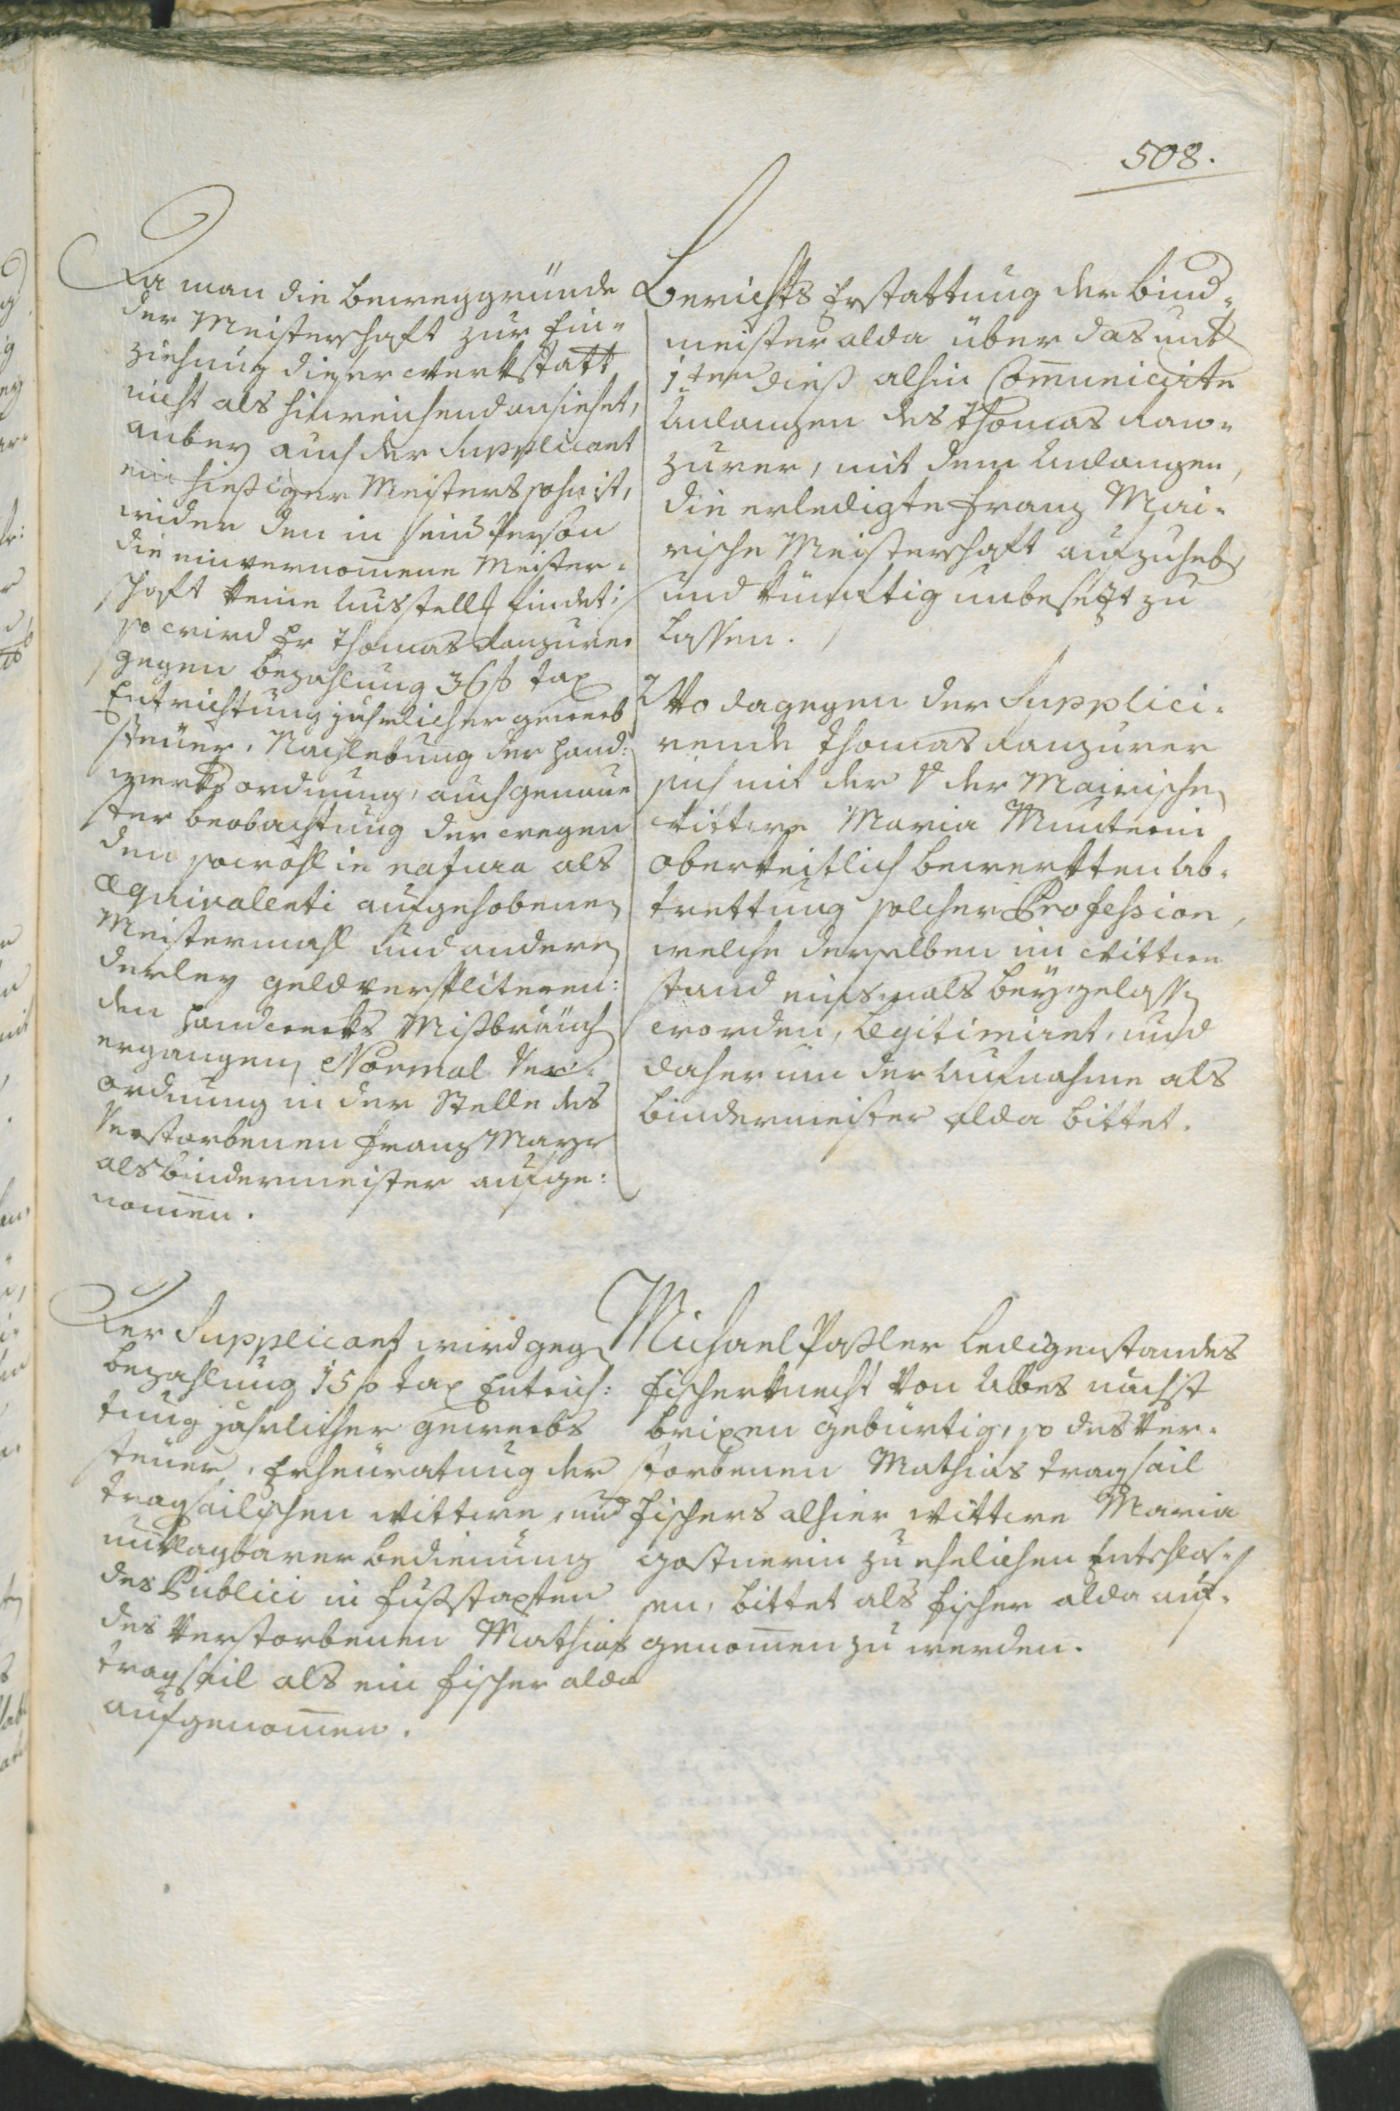 508.
Da man die beweggründe
der Meisterschaft zur Ein-
ziehung dieser werkstatt
nicht als hinreichend ansiehet,
anbey auch der Supplicant
ein hießiger Meisters sohn ist,
wider den in sein Person
die einvernom̅ene Meister-
schaft keine Ausstell findet;
so wird Er Thomas Kanzurer
gegen bezahlung 36 f tax
Entrichtung jährlicher gewerb
steüer, Nachlebung der hand:
werks ordnung, auch genaue
ster beobachtung der wegen
den sowohl in natura als
æquivalenti aufgehobenen
Meistermahl und andern
derley geldversplitteren:
den handwerks Mißbräuch
ergangen Normal Ver-
ordnung in der Stelle des
Verstorbenen Franz Mayr
als bindermeister aufge:
nom̅en.
Berichts Erstattung der bind-
meister alda über das unt
1ten dieß alhin Com̅unicirte
Anlangen des Thomas Kan-
zurer, mit dem Anlangen,
die erledigte Franz Mai-
rische Meisterschaft aufzuheb
und künftig unbesetzt zu
lassen.
Wo dagegen der Supplici-
rende Thomas Kanzurer
sich mit der der Mairischen
wittwe Maria Munterin
oberkeitlich bewerkten Ab-
trettung solcher Profession,
welche derselben im wittwe
stand niehsmals beÿgelass
worden, legitimiret, und
daher um der Aufnahme als
bindermeister alda bittet.
Der Supplicant wird geg
bezahlung 15 f tax Entrich:
tung jährlicher gewerbs
steüer, Erheüratung der
tragsailischen wittwe, und
unklagbarer bedienung
des Publici in fußstapfen
des Verstorbenen Mathias
tragsail als ein fischer alda
aufgenom̅en.
Michael Paßler ledigenstandes
fischerknecht von Albes nächst
brixen gebürtig, so des Ver-
storbenen Mathias tragsail
fischers alhier wittwe Maria
gostnerin zu ehelichen Entschlos-
sen, bittet als fischer alda auf-
genom̅en zu werden.